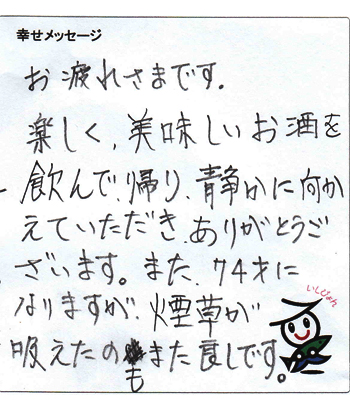 幸せメッセージ
お疲れさまです。
楽しく、美味しいお酒を
飲んで、帰り、静かに向か
えていただき、ありがとうご
ざいます。また、74才に
なりますが、煙草が
吸えたのもまた良しです。
いしぴょん